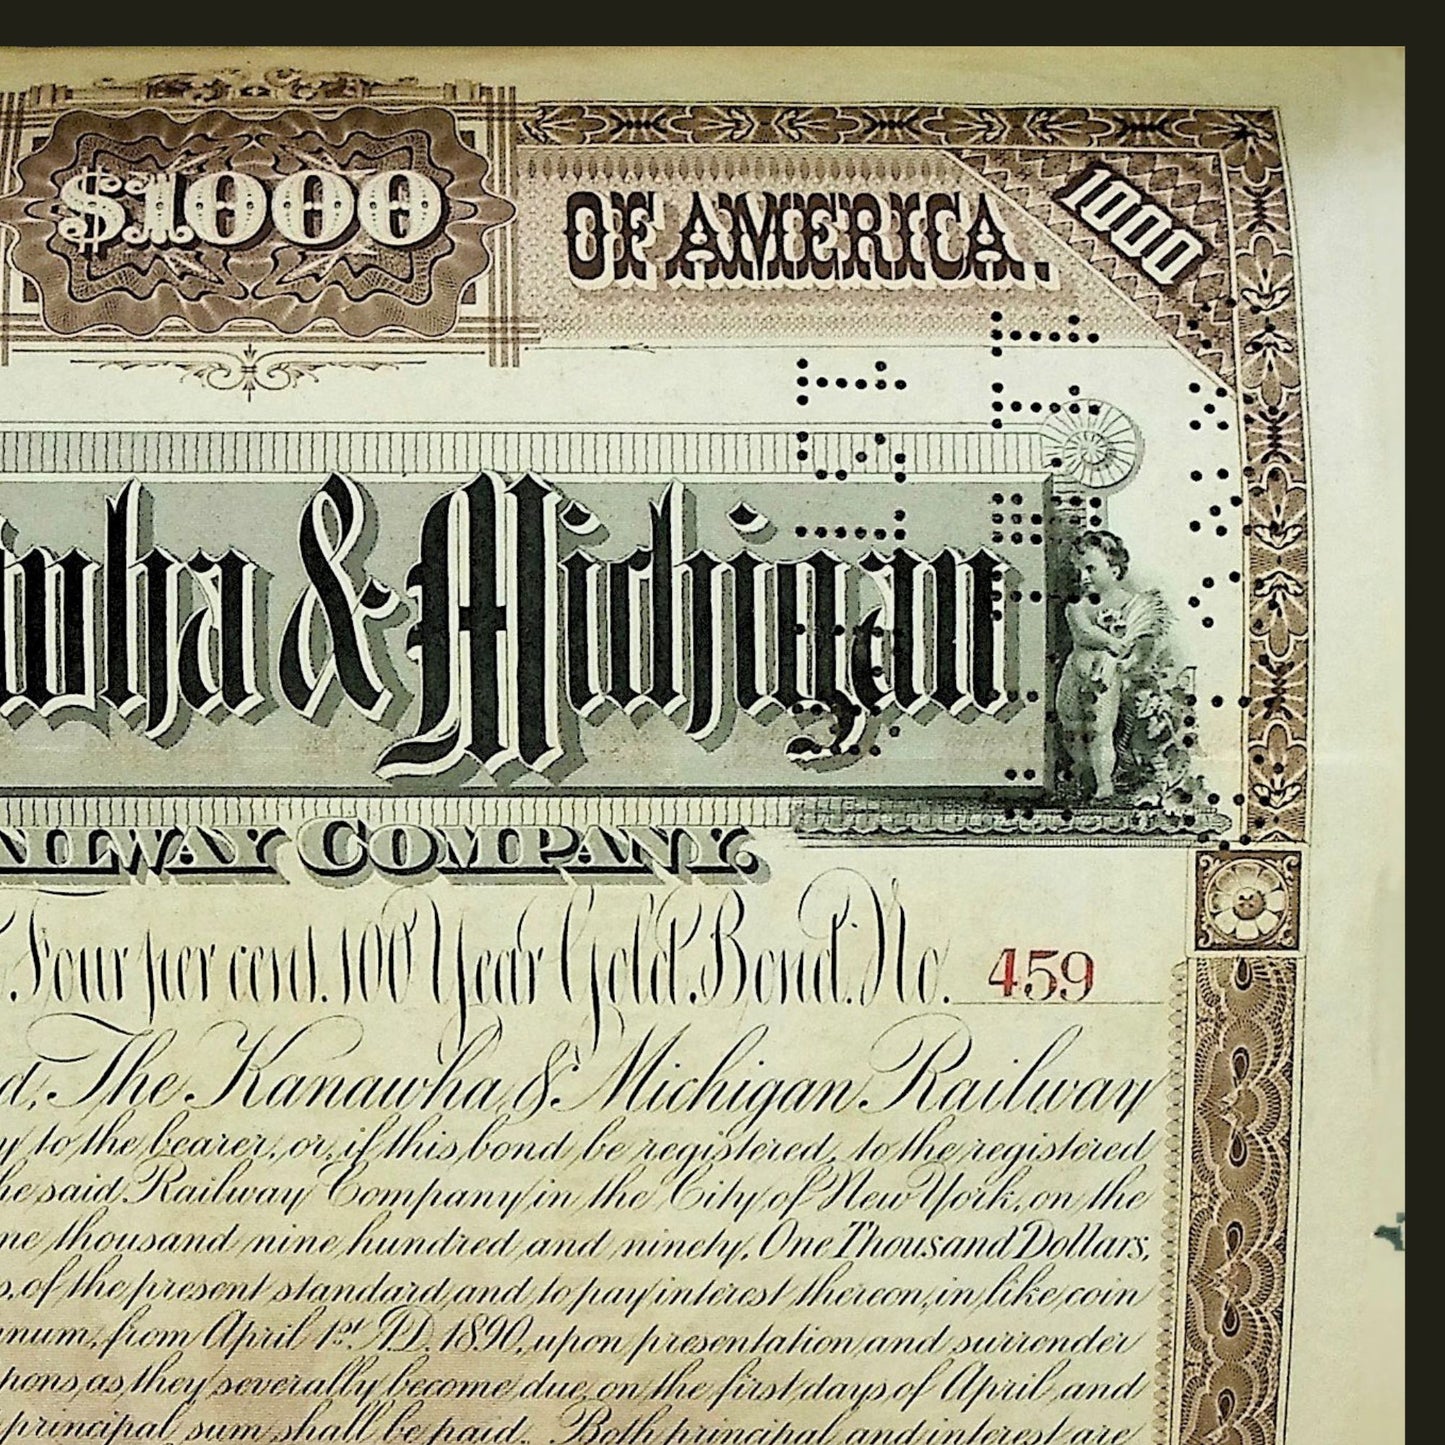 $1000
OF AMERICA.
1000
& Michigan
RAILWAY COMPANY.
Four per cent. 100 Year Gold Bond. No. 459
The Kanawha & Michigan Railway
to the bearer, or, if this bond be registered, to the registered
said Railway Company in the City of New York, on the
thousand nine hundred and ninety, One Thousand Dollars,
of the present standard, and to pay interest thereon, in like coin
from April 1st A.D. 1890, upon presentation and surrender
as they severally become due, on the first days of April and
principal sum shall be paid. Both principal and interest are